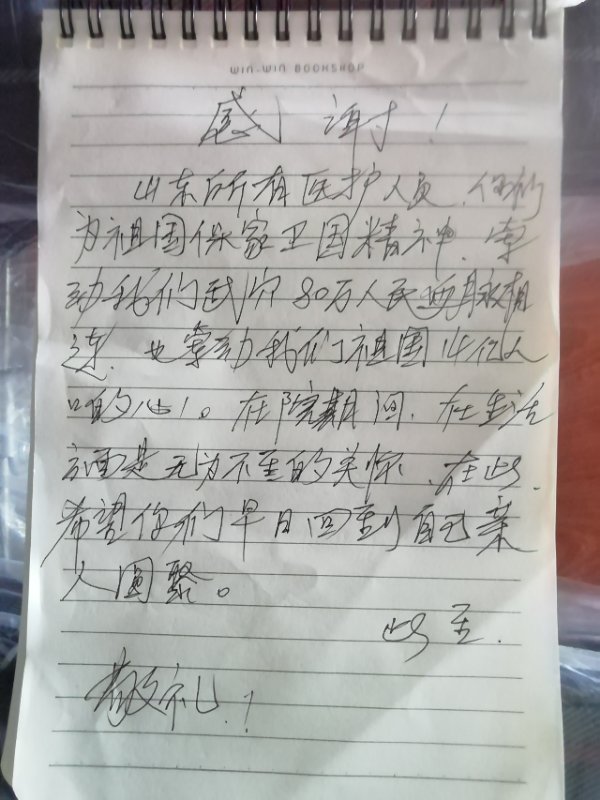 WIN-WIN BOOKSHOP
感谢！
山东所有医护人员，你们
为祖国保家卫国精神，牵
动我们武穴80万人民血脉相
连，也牵动我们祖国14亿人
口的心。在院期间，在生活
方面是无为不至的关怀，在此，
希望你们早日回到自己亲
人团聚。
此至
敬礼！